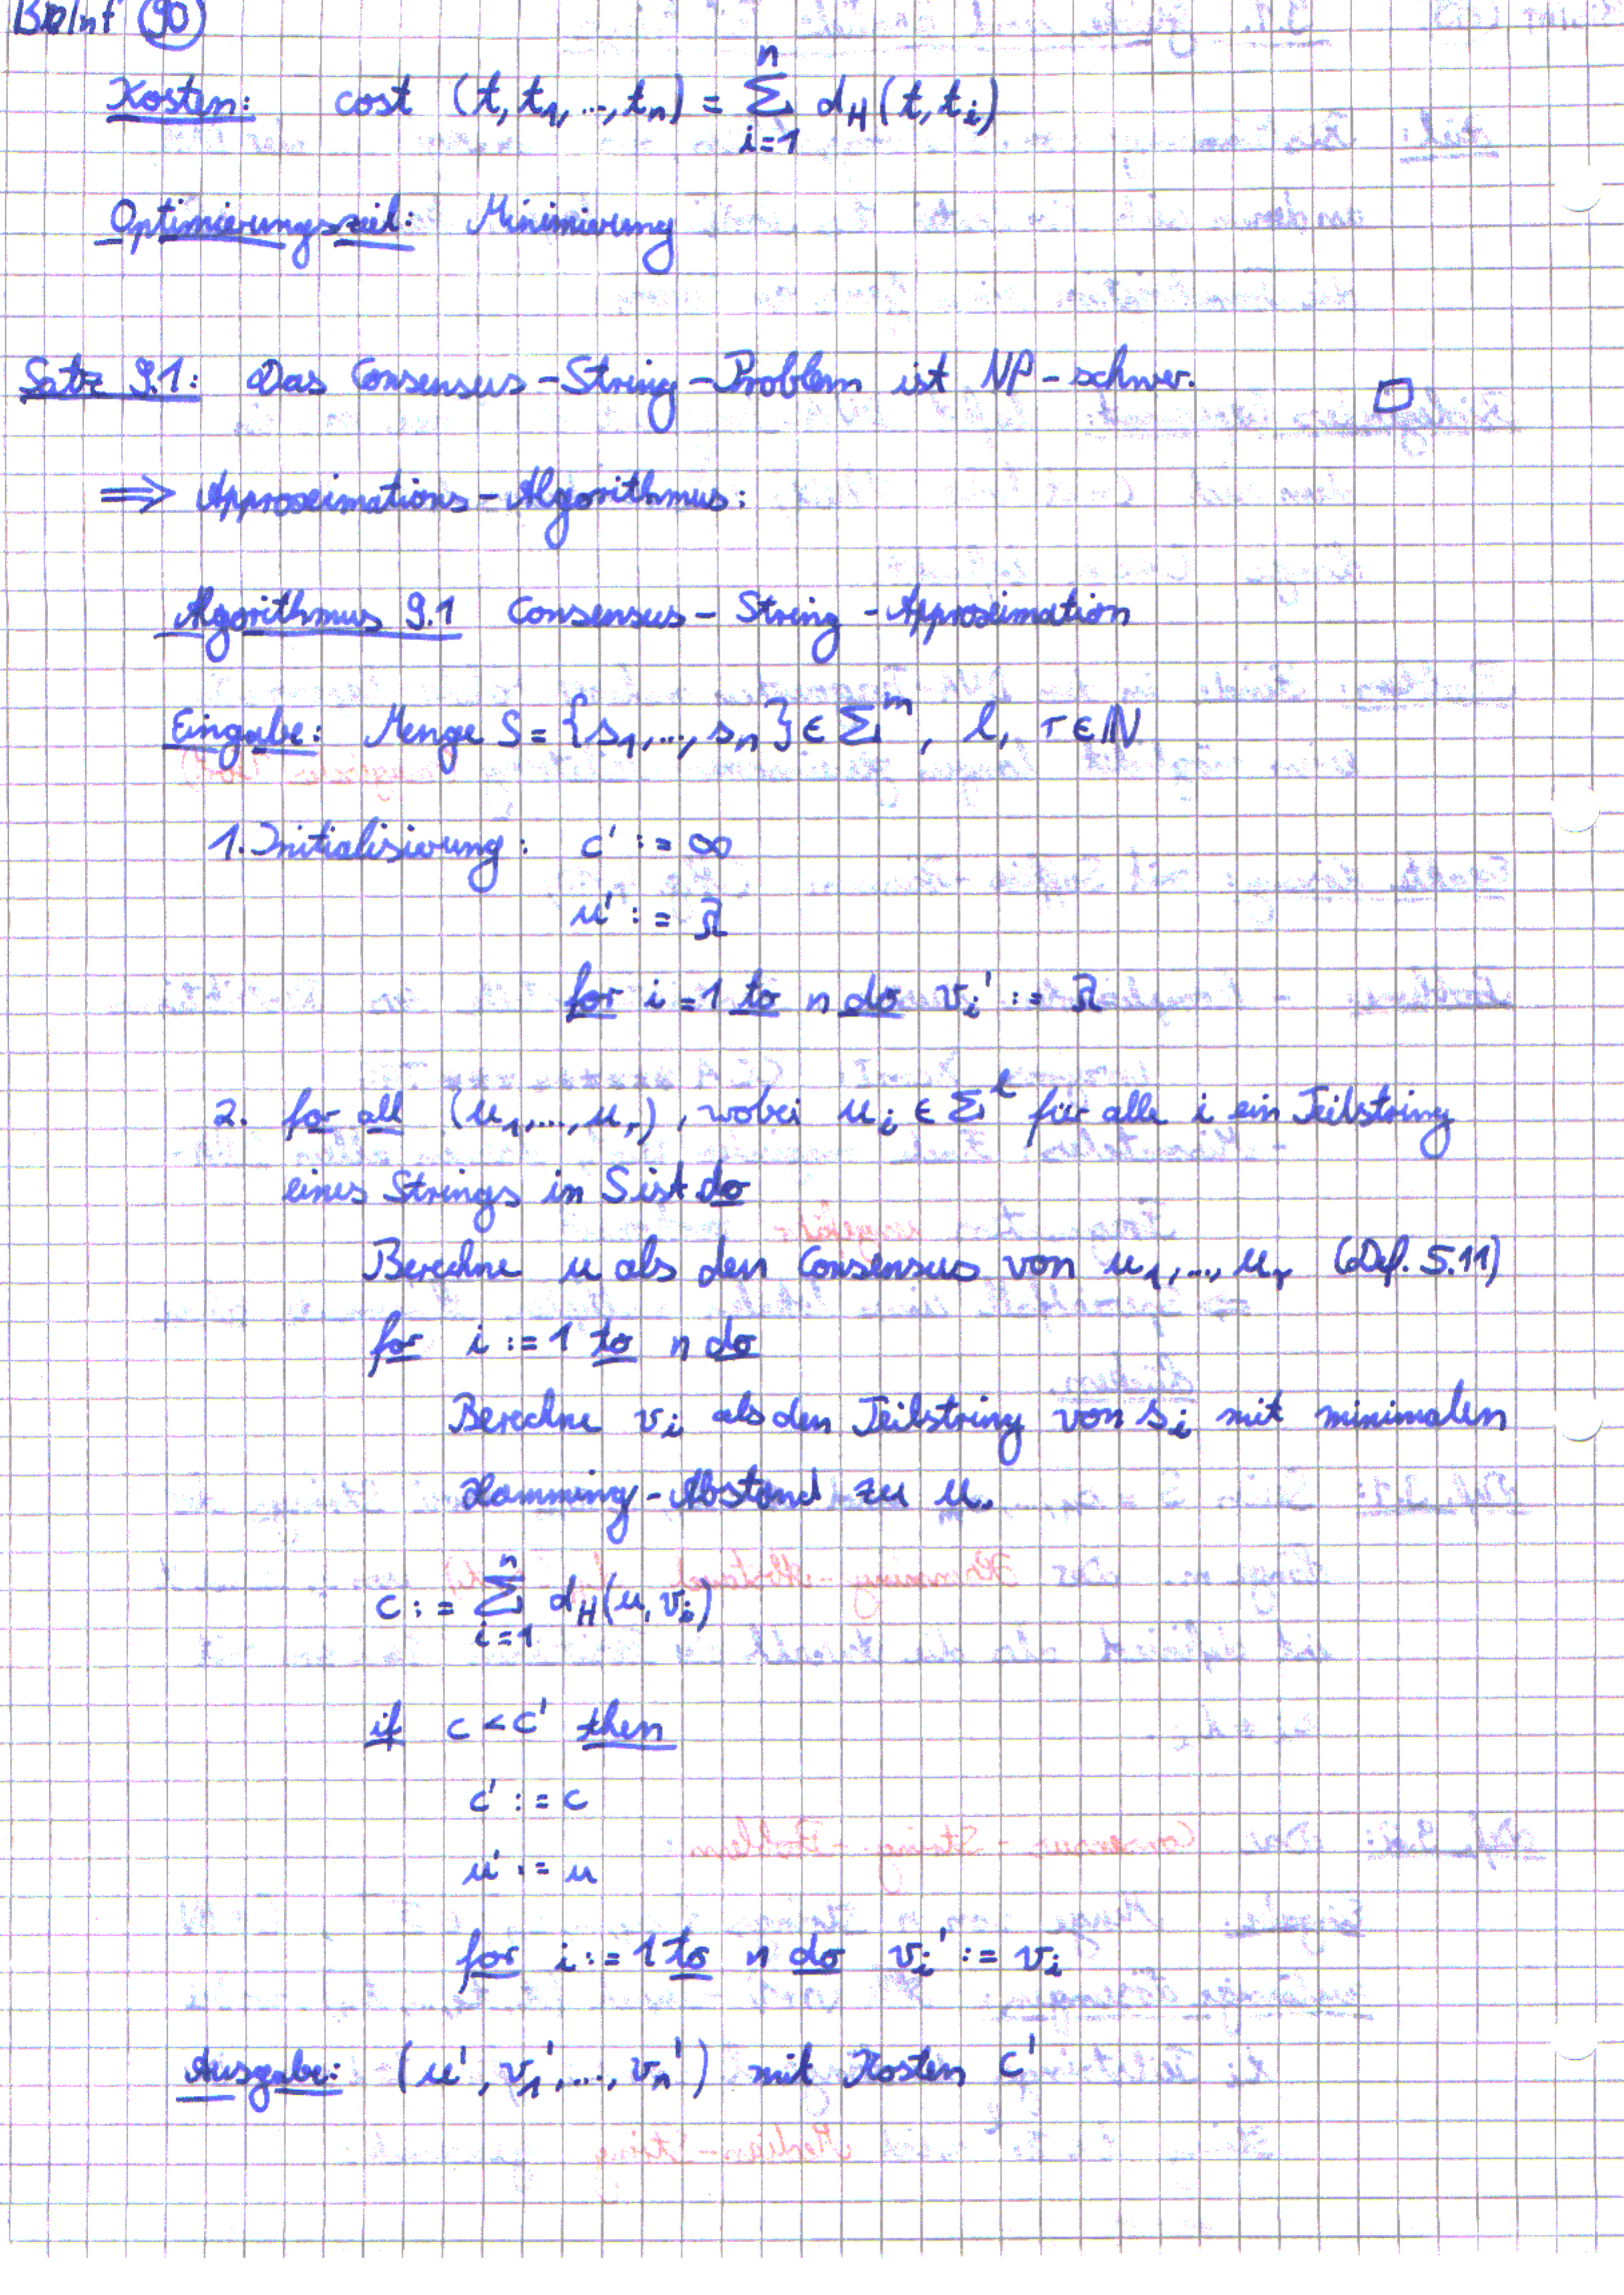 BioInf 90
Kosten: cost (t, t₁, ..., tₙ) = Σᵢ₌₁ⁿ d_H(t, tᵢ)
Optimierungsziel: Minimierung
Satz 9.1: Das Consensus-String-Problem ist NP-schwer. □
⟹ Approximations-Algorithmus:
Algorithmus 9.1 Consensus-String-Approximation
Eingabe: Menge S = {s₁, ..., sₙ} ∈ Σᵐ, l, r ∈ ℕ
1. Initialisierung: c' := ∞
u' := λ
for i = 1 to n do vᵢ' := λ
2. for all (u₁, ..., uᵣ), wobei uᵢ ∈ Σˡ für alle i ein Teilstring
eines Strings in S ist do
Berechne u als den Consensus von u₁, ..., uᵣ (Def. 5.11)
for i := 1 to n do
Berechne vᵢ als den Teilstring von sᵢ mit minimalen
Hamming-Abstand zu u.
c := Σᵢ₌₁ⁿ d_H(u, vᵢ)
if c < c' then
c' := c
u' := u
for i := 1 to n do vᵢ' := vᵢ
Ausgabe: (u', v₁', ..., vₙ') mit Kosten c'